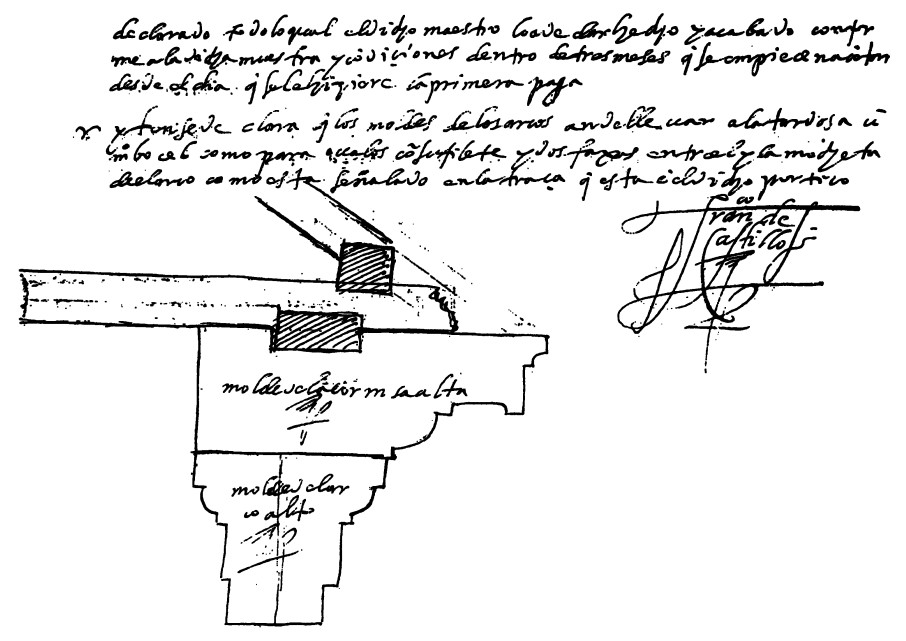 declarado todo lo qual el dicho maestro lo a de dar hecho y acabado confor
me a la dicha muestra y condiciones dentro de tres meses q̃ se empiecen a contar
desde el dia q̃ se le hiziere la primera paga
y tanse de clara q̃ los moldes de los arcos an de lleuar a la tardosa u̅
bocel como para con su filete y dos faxas entre el y la mocheta
del arco como esta señalado en la traça q̃ esta dicho portico
fran^co de
castillo
molde de la cornisa alta
molde del ar
co alto